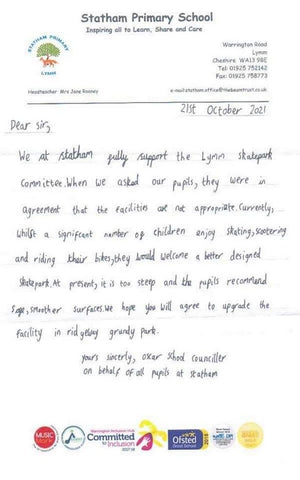 Statham Primary School
Inspiring all to Learn, Share and Care
STATHAM PRIMARY
LYMM
Warrington Road
Lymm
Cheshire WA13 9BE
Tel: 01925 752142
Fax: 01925 758773
Headteacher Mrs Jane Rooney
e-mail:statham.office@thebeamtrust.co.uk
21st October 2021
Dear sir,
We at statham fully support the Lymm skatepark
Committee. When we asked our pupils, they were in
agreement that the facilities are not appropriate. Currently,
whilst a significant number of children enjoy skating, scootering
and riding their bikes, they would welcome a better designed
skatepark. At present, it is too steep and the pupils recommend
safe, smoother surfaces. We hope you will agree to upgrade the
facility in ridgeway grundy park.
yours sincerly, oscar school counciller
on behalf of all pupils at statham
MUSIC
Mark
Warrington Inclusion Hub
Committed
to Inclusion
2017-18
Ofsted
Good School
2015